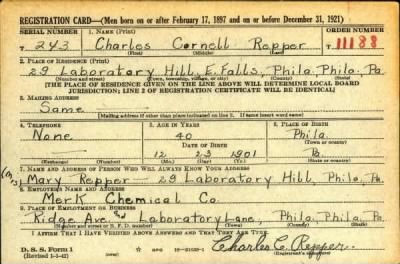 REGISTRATION CARD—(Men born on or after February 17, 1897 and on or before December 31, 1921)
SERIAL NUMBER 1. NAME (Print) ORDER NUMBER
T 243 Charles Cornell Repper 11188
(First) (Middle) (Last)
2. PLACE OF RESIDENCE (Print)
29 Laboratory Hill, E. Falls, Phila. Phila. Pa.
(Number and street) (Town, township, village, or city) (County) (State)
[THE PLACE OF RESIDENCE GIVEN ON THE LINE ABOVE WILL DETERMINE LOCAL BOARD
JURISDICTION; LINE 2 OF REGISTRATION CERTIFICATE WILL BE IDENTICAL]
3. MAILING ADDRESS
Same
[Mailing address if other than place indicated on line 2. If same insert word same]
4. TELEPHONE 5. AGE IN YEARS 6. PLACE OF BIRTH
None 40 Phila.
DATE OF BIRTH (Town or county)
12 23 1901 Pa.
(Exchange) (Number) (Mo.) (Day) (Yr.) (State or country)
7. NAME AND ADDRESS OF PERSON WHO WILL ALWAYS KNOW YOUR ADDRESS
Mary Repper — 29 Laboratory Hill, Phila, Pa.
8. EMPLOYER'S NAME AND ADDRESS
Merk Chemical Co.
9. PLACE OF EMPLOYMENT OR BUSINESS
Ridge Ave. and Laboratory Lane, Phila. Phila. Pa.
(Number and street or R. F. D. number) (Town) (County) (State)
I AFFIRM THAT I HAVE VERIFIED ABOVE ANSWERS AND THAT THEY ARE TRUE.
D. S. S. Form 1
(Revised 1-1-42)
Charles C. Repper.